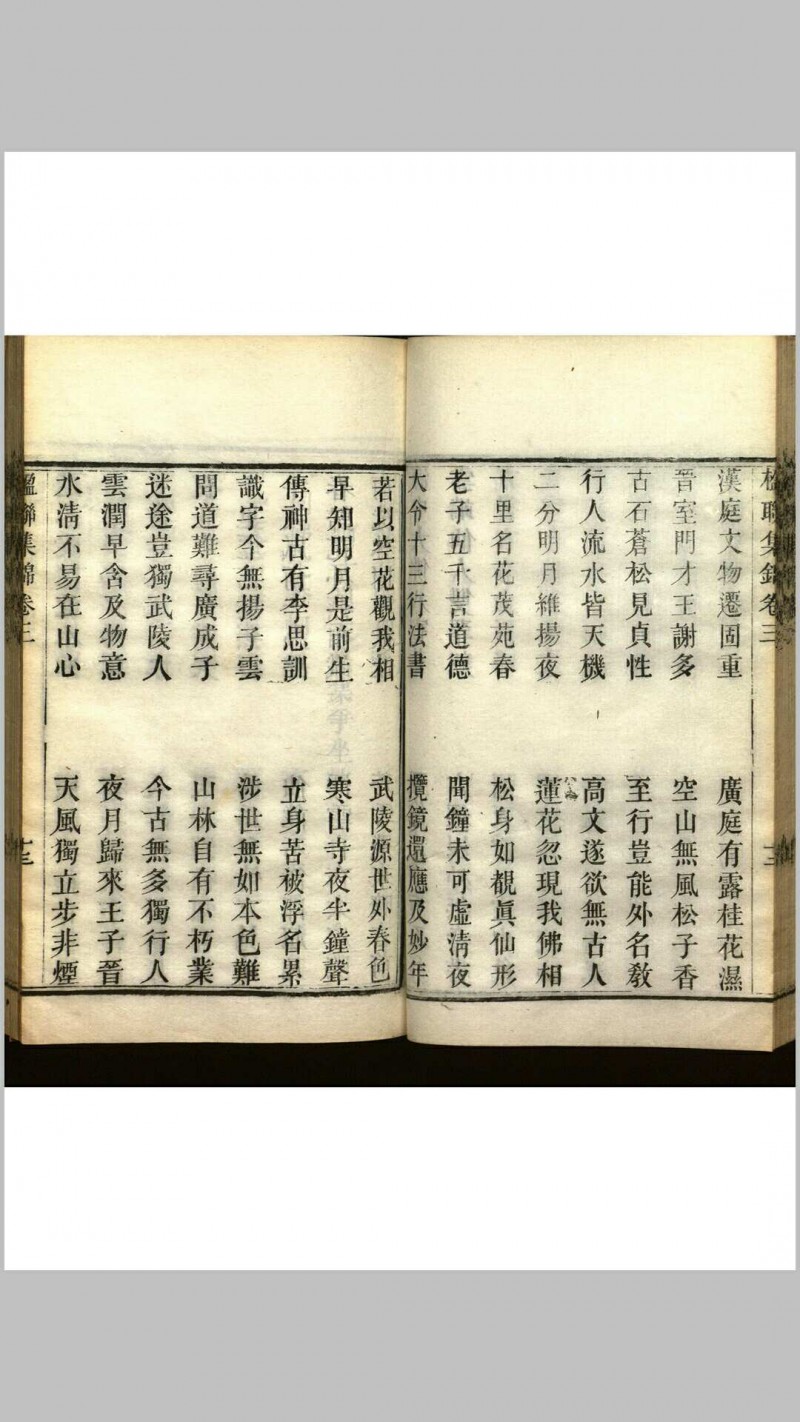 楹聯集錦卷三
漢庭文物遷固重
廣庭有露桂花濕
晉室門才王謝多
空山無風松子香
古石蒼松見貞性
至行豈能外名敎
行人流水皆天機
高文遂欲無古人
二分明月維揚夜
蓮花忽現我佛相
十里名花茂苑春
松身如覩眞仙形
老子五千言道德
聞鐘未可虛淸夜
大令十三行法書
攬鏡還應及妙年
若以空花觀我相
武陵源世外春色
早知明月是前生
寒山寺夜半鐘聲
傳神古有李思訓
立身苦被浮名累
識字今無揚子雲
涉世無如本色難
問道難尋廣成子
山林自有不朽業
迷途豈獨武陵人
今古無多獨行人
雲潤早含及物意
夜月歸來王子晉
水淸不易在山心
天風獨立步非煙
楹聯集錦卷三
十三